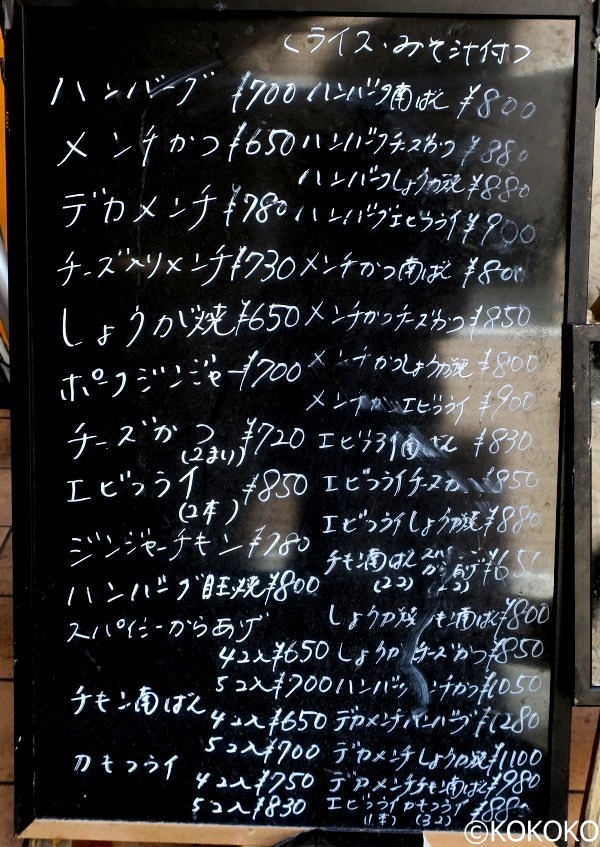 (ライス・みそ汁付)
ハンバーグ ¥700
メンチかつ ¥650
デカメンチ ¥780
チーズ入りメンチ ¥730
しょうが焼 ¥650
ポークジンジャー ¥700
チーズかつ ¥720
(2まい)
エビフライ ¥850
(2本)
ジンジャーチキン ¥780
ハンバーグ目玉焼 ¥800
スパイシーからあげ
4コ入¥650
5コ入¥700
チキン南ばん
4コ入¥650
5コ入¥700
カキフライ
4コ入¥750
5コ入¥830
ハンバーグ南ばん ¥800
ハンバーグチーズかつ ¥880
ハンバーグしょうが焼 ¥880
ハンバーグエビフライ ¥900
メンチかつ南ばん ¥800
メンチかつチーズかつ ¥850
メンチかつしょうが焼 ¥800
メンチかつエビフライ ¥900
エビフライ南ばん ¥830
エビフライチーズかつ ¥850
エビフライしょうが焼 ¥880
チキン南ばん からあげ ¥650
(2コ) (2コ)
しょうが焼チキン南ばん ¥800
しょうが チーズかつ ¥850
ハンバーグメンチかつ ¥1050
デカメンチハンバーグ ¥1280
デカメンチしょうが焼 ¥1100
デカメンチチキン南ばん ¥980
エビフライカキフライ ¥880
(1本) (3コ)
©KOKOKO